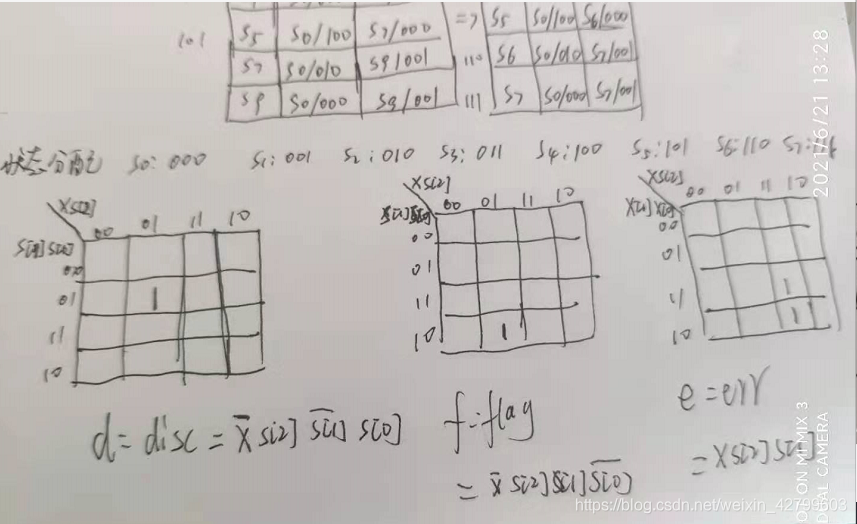 101 S5 S0/100 S7/000 => S5 S0/100 S6/000
S7 S0/010 S9/001 110 S6 S0/010 S7/001
S9 S0/000 S9/001 111 S7 S0/000 S7/001
状态分配 S0: 000 S1: 001 S2: 010 S3: 011 S4: 100 S5: 101 S6: 110 S7: 111
XS[2] XS[2] XS[2]
00 01 11 10 00 01 11 10 00 01 11 10
S[1]S[0]
00 00 00
01 1 01 01
11 11 11 1
10 10 1 10 1
d = disc = X̅ S[2] S̅[̅1̅]̅ S[0]
f = flag
= X̅ S[2] S[1] S̅[̅0̅]̅
e = err
= X S[2] S[1]
2021/6/21 13:28
ON MI MIX 3
DUAL CAMERA
https://blog.csdn.net/weixin_42799603